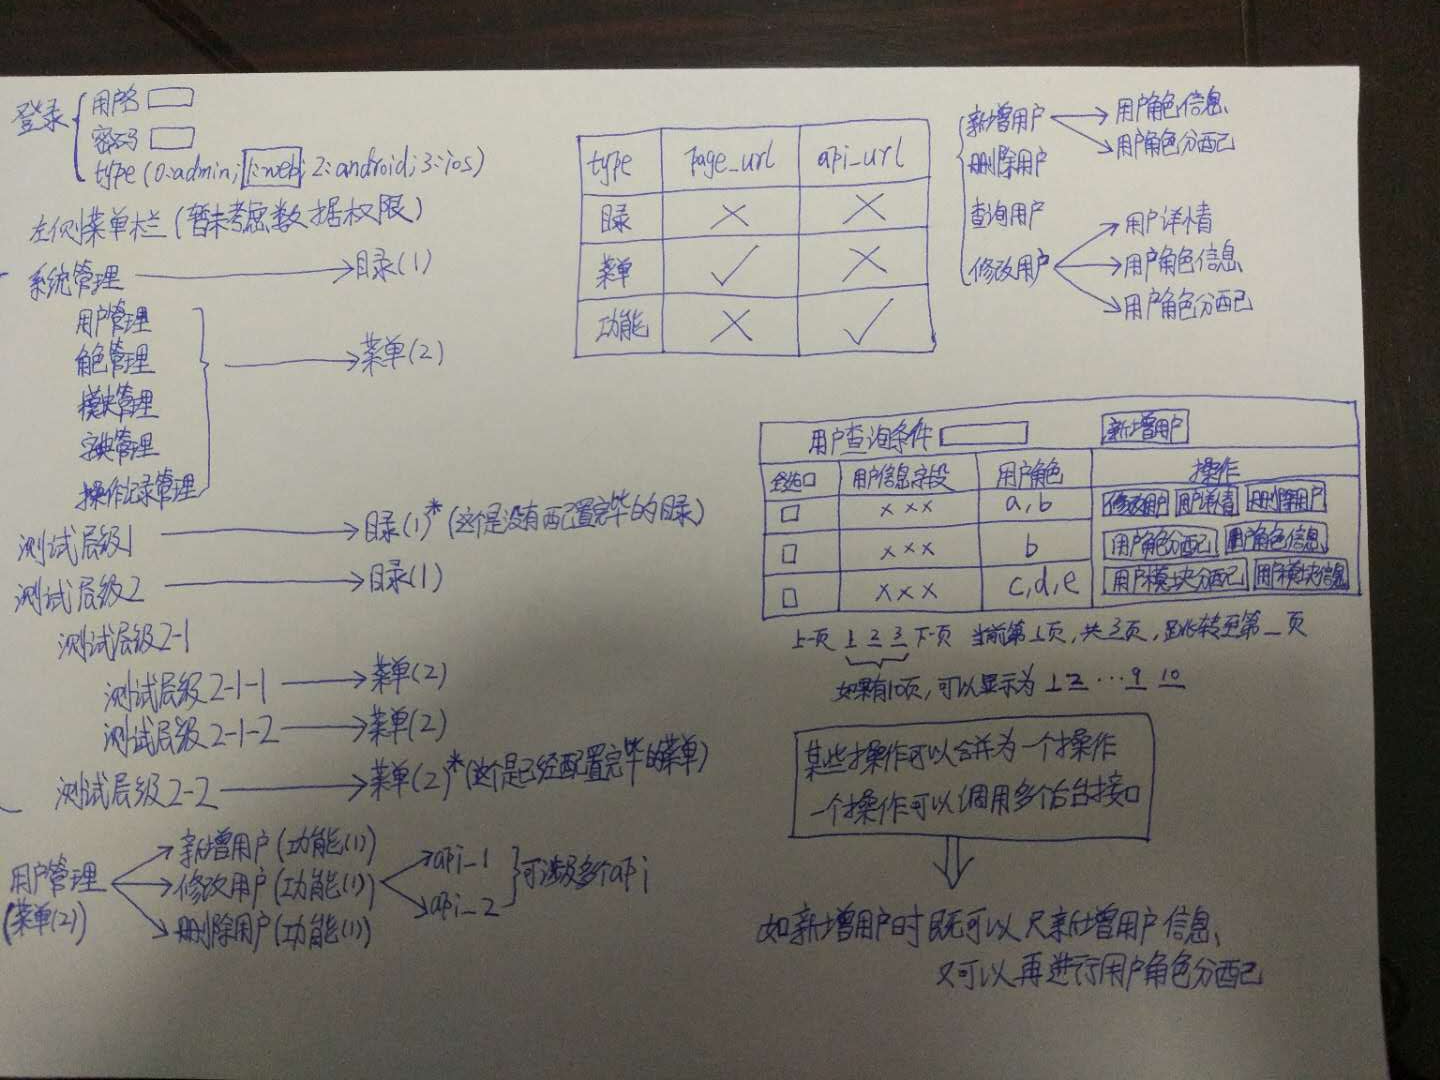 登录
用户名
密码
type (0:admin; 1:web; 2:android; 3:ios)
左侧菜单栏 (暂未考虑数据权限)
系统管理 目录(1)
用户管理
角色管理
模块管理
字典管理
操作记录管理
菜单(2)
测试层级1 目录(1)* (这个是没有配置完毕的目录)
测试层级2 目录(1)
测试层级2-1
测试层级2-1-1 菜单(2)
测试层级2-1-2 菜单(2)
测试层级2-2 菜单(2)* (这个是已经配置完毕的菜单)
用户管理
(菜单(2))
新增用户 (功能(1))
修改用户 (功能(1))
删除用户 (功能(1))
api_1
api_2
可涉及多个api
type page_url api_url
目录 × ×
菜单 ✓ ×
功能 × ✓
新增用户 用户角色信息
用户角色分配
删除用户
查询用户
修改用户 用户详情
用户角色信息
用户角色分配
用户查询条件 新增用户
全选 用户信息字段 用户角色 操作
××× a,b 修改用户 用户详情 删除用户
××× b 用户角色分配 用户角色信息
××× c,d,e 用户模块分配 用户模块信息
上一页 1 2 3 下一页 当前第1页, 共3页, 跳转至第_页
如果有10页, 可以显示为 1 2 … 9 10
某些操作可以合并为一个操作
一个操作可以调用多个后台接口
如新增用户时既可以只新增用户信息、
又可以再进行用户角色分配